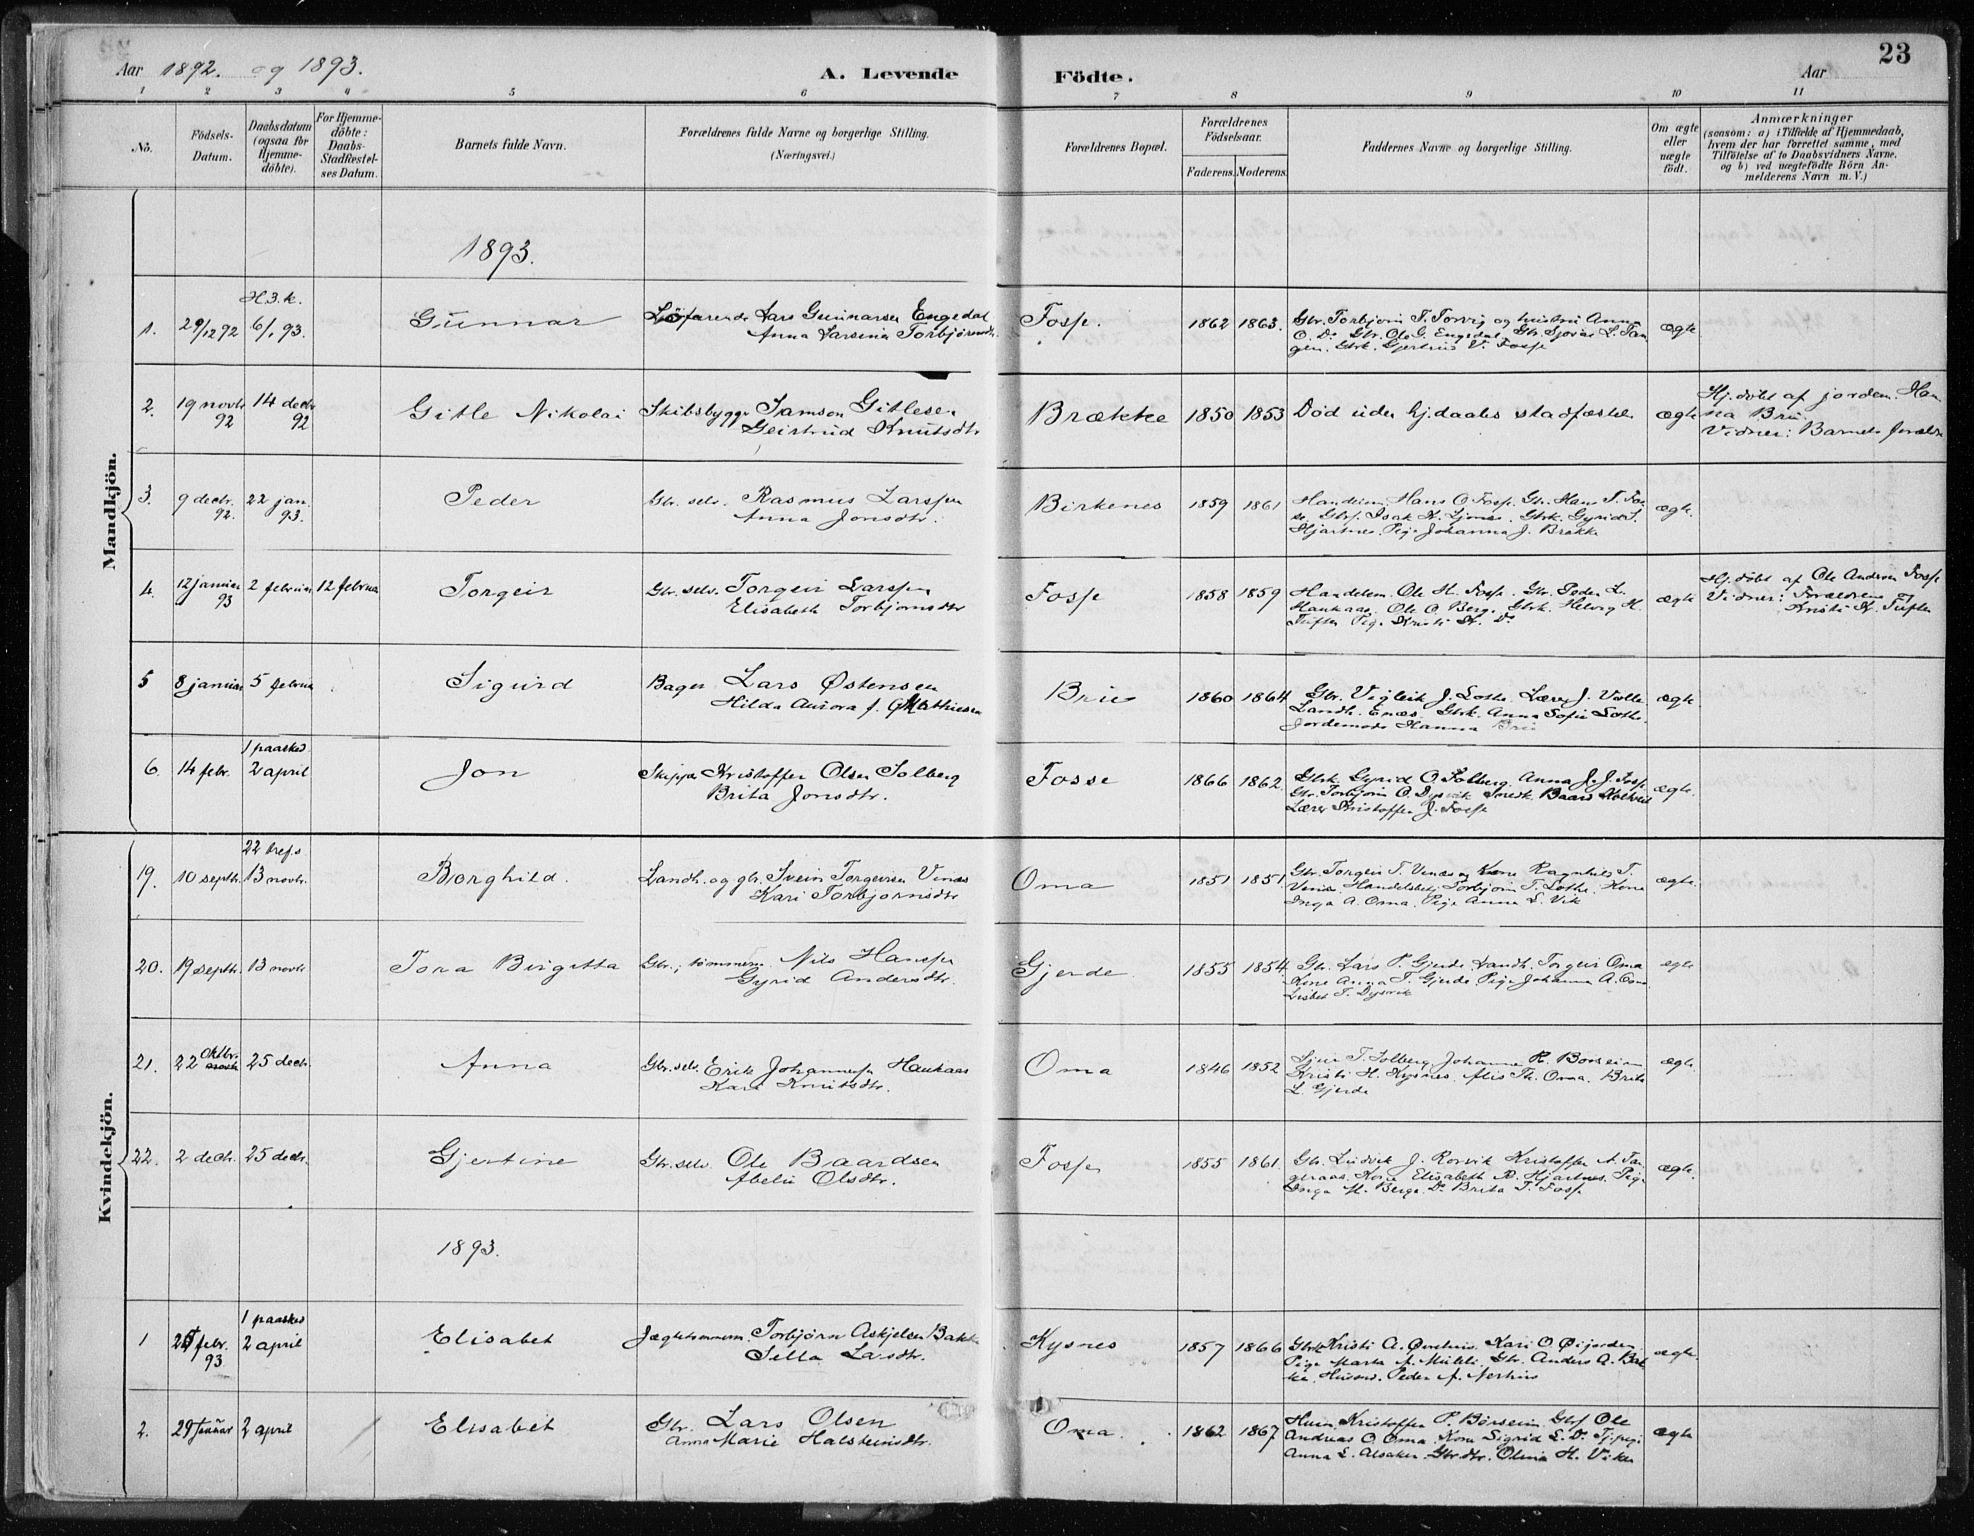 23
Aar 1892. og 1893.
A. Levende Födte.
Aar
1 2 3 4 5 6 7 8 9 10 11
No.
Födsels-Datum.
Daabsdatum (ogsaa for Hjemme-döbte).
For Hjemme-döbte: Daabs-Stadfæstel-ses Datum.
Barnets fulde Navn.
Forældrenes fulde Navne og borgerlige Stilling.
(Næringsvei.)
Forældrenes Bopæl.
Forældrenes Födselsaar.
Faderens. Moderens.
Faddernes Navne og borgerlige Stilling.
Om ægte eller uægte födt.
Anmærkninger
(saasom: a) i Tilfælde af Hjemmedaab,
hvem der har forrettet samme, med
Tilföielse af to Daabsvidners Navne.
og b) ved uægtefödte Börn An-
melderens Navn m. V.)
Mandkjön.
1893.
H.3.k.
1. 29/12 92 6/1 93. Gunnar Lars Gunnarsen Engedal Fosse. 1862 1863. Gbr. Torbjørn T. Torvig og hustru Anna ægte
Anna Larsina Torbjørnsdtr. O. Do. Gbr. Ole G. Engedal. Gbr. Sjovat L. Tan-
gen. Gbrk. Gjertrud V. Fosse
2. 19 novbr. 92 14 decbr. 92 Gitle Nikolai Skibsbygger Samson Gitlesen Brække 1850 1853 Død uden hj.daabs stadfæstelse ægte Hj.døbt af jordem. Han-
Geirtrud Knutsdtr. na Bru.
Vidner: Barnets forældre
3. 9 decbr. 92. 22 jan. 93. Peder Gbr. selv. Rasmus Larssen Birkenes 1859 1861 Handelsm. Hans O. Fosse. Gbr. Hans T. Fos- ægte.
Anna Jonsdtr. se. Gbrs. Isak K. Ljones. Gbrk. Gyrid S.
Hjartnes. Pige Johanna J. Brække
4. 12 januar 93 2 februar 12 februar Torgeir Gbr. selv. Torgeir Larssen Fosse 1858 1859 Handelsm. Ole H. Fosse. Gbr. Peder L. ægte Hj. døbt af Ole Andersen Fosse
Elisabeth Torbjørnsdtr Haukaas. Ole O. Berge. Gbrk. Helvig H. Vidner: Forældrene og
Tufte. Pige Kristi K. Do. Kristi K. Tufte
5 8 januar 5 februar Sigurd Bager Lars Østensen Bru 1860 1864 Gbr. Vigleik J. Lothe. Lærer J. Valle ægte
Hilda Aurora f. Mathiesen Landh. Enæs. Gbrk. Anna Sofie Lothe.
Jordemoder Hanna Bru
1 paasked.
6. 14 febr. 2 april Jon Skipper Kristoffer Olsen Solberg Fosse 1866 1862. Gbrk. Gyrid O. Solberg. Anna J. J. Fosse ægte.
Brita Jonsdtr. Gbr. Torbjørn O. Dysvik. Baard
Lærer Kristoffer J. Fosse
Kvindekjön.
22 tref.s
19. 10 septbr. 13 novbr. Borghild. Landh. og gbr. Svein Torgeirsen Vinæs Oma 1851 1851 Gbr. Torgeir T. Vinæs og Kone Ragnhild T. ægte.
Kari Torbjørnsdtr Vinæs. Handelsbetj. Torbjørn T. Lothe. Kone
Inga A. Oma. Pige Anna L. Vik
20. 19 septbr. 13 novbr. Tora Birgitta Gbr., tømmerm Nils Hanssen Gjerde 1855 1854. Gbr. Lars P. Gjerde. Landh. Torgeir Oma ægte
Gyrid Andersdtr. Kone Anna T. Gjerde. Pige Johanna A. Oma
Lisbet T. Dysvik
21. 22 oktbr. 25 decbr. Anna Gbr. selv. Erik Johannessen Haukaas Oma 1846 1852 T. Solberg. Johannes R. Børseim ægte.
Kari Knutsdtr. Kristi H. Kysnes. Alis Th. Oma. Brita
L. Gjerde
22. 2 decbr. 25 decbr. Gjertine Gbr. selv. Ole Baardsen Fosse 1855 1861. Gbr. Ludvik J. Rorvik Kristoffer A. Tan- ægte.
Abelu Olsdtr. geraas. Kone Elisabeth B. Hjartnes. Pige
Inga M. Berge. Do. Brita T. Fosse
1893.
1 paasked
1 26 febr. 93 2 april Elisabet Jægtetømmerm. Torbjørn Askjelsen Bakke Kysnes 1857 1866 Gbrk Kristi A. Øvrehus. Kari O. Øijorden ægte.
Sella Larsdtr. Pige Marta A. Mikle. Gbr. Anders A. Bak-
ke. Husm. Peder A. Nerhus
2. 29 Januar 2 april Elisabet Gbr. Lars Olsen Oma. 1862 1867 Husm. Kristoffer P. Børseim. Gbrs. Ole ægte
Anna Marie Halsteinsdtr. Andreas O. Oma. Kone Sigrid L. Do. Tj.pige
Anna L. Alsaker. Gbr.dtr. Olina H. Vikø